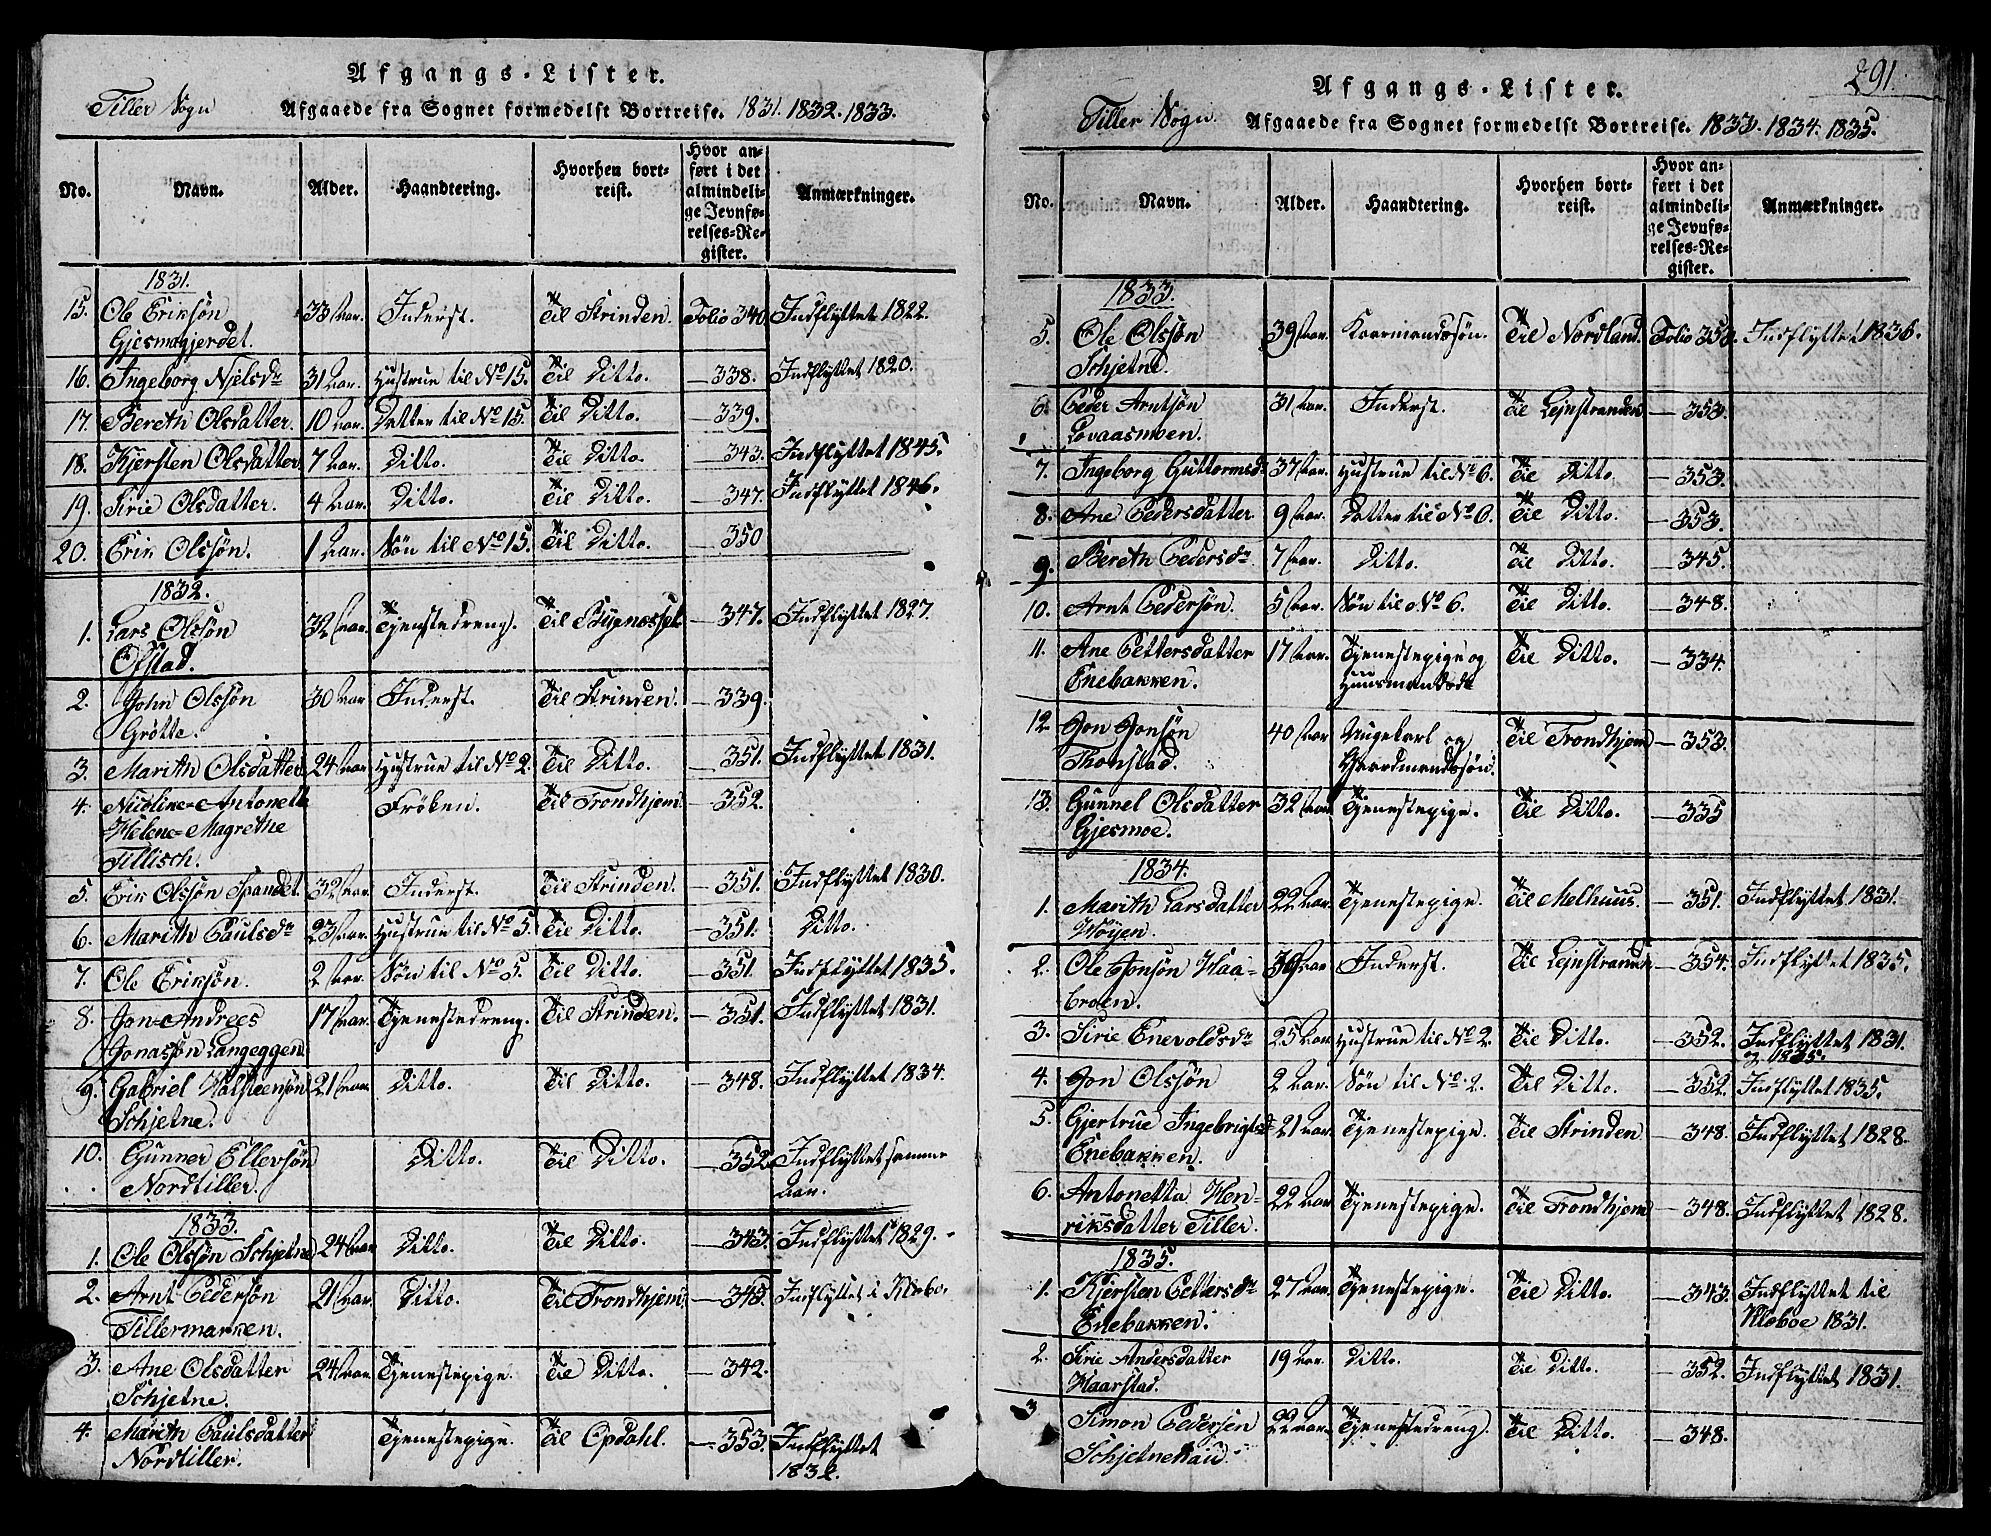 Afgangs-Lister.
Tiller Sogn Afgaaede fra Sognet formedelst Bortreise. 1831. 1832. 1833.
No. Navn. Alder. Haandtering. Hvorhen bort-reist. Hvor an-ført i det almindeli-ge Jevnfø-relses-Re-gister. Anmærkninger.
1831.
15. Ole Eriksøn 33 Aar. Inderst. Til Strinden. Folio 340 Indflyttet 1822.
Gjesmogjerdet.
16. Ingeborg Nielsdr 31 Aar. Hustrue til No 15. Til Ditto. — 338. Indflyttet 1820.
17. Bereth Olsdatter. 10 Aar. Datter til No 15. Til Ditto. — 339.
18. Kjersten Olsdatter 7 Aar. Ditto. Til Ditto. — 343. Indflyttet 1845.
19. Sirie Olsdatter. 4 Aar. Ditto. Til Ditto. — 347. Indflyttet 1846.
20. Erik Olssøn. 1 Aar. Søn til No 15. Til Ditto. — 350
1832.
1. Lars Olssøn 32 Aar. Tjenestedreng. Til Bynæsset — 347. Indflyttet 1827.
Ofstad.
2. John Olssøn 30 Aar Inderst. Til Strinden. — 339.
Grøtte.
3. Marith Olsdatter 24 Aar Hustrue til No 2. Til Ditto. — 351. Indflyttet 1831.
4. Nicoline-Antonett Frøken. Til Trondhjem — 352.
Helene-Magrethe
Tillisch.
5. Erik Olssøn Spandet. 32 Aar. Inderst. Til Strinden. — 351. Indflyttet 1830.
6. Marith Paulsdr 23 Aar. Hustrue til No 5. Til Ditto. — 351. Ditto.
7. Ole Eriksøn. 2 Aar. Søn til No 5. Til Ditto. — 351. Indflyttet 1835.
8. Jon-Andrees 17 Aar. Tjenestedreng. Til Strinden. — 351. Indflyttet 1831.
Jonassøn Langeggen
9. Gabriel Halsteensøn 21 Aar Ditto. Til Ditto. — 348. Indflyttet 1834.
Schjetne.
10. Gunner Ellevsøn Ditto. Til Ditto. — 352 Indflyttet samme
Nordtiller. Aar.
1833.
1. Ole Olssøn Schjetne 24 Aar Ditto. Til Ditto. — 343. Indflyttet 1829.
2. Arnt Pedersøn 21 Aar. Ditto. Til Trondhjem. — 345. Indflyttet i Klæbo.
Tillermarken.
3. Ane Olsdatter 24 Aar. Tjenestepige. Til Ditto. — 342.
Schjetne.
4. Marith Paulsdatter Tjenestepige. Til Opdahl. — 353. Indflyttet
Nordtiller. 1832.
291.
Afgangs-Lister.
Tiller Sogn. Afgaaede fra Sognet formedelst Bortreise. 1833. 1834. 1835.
No. Navn. Alder. Haandtering. Hvorhen bort-reist. Hvor an-ført i det almindeli-ge Jevnfø-relses-Re-gister. Anmærkninger.
1833.
5. Ole Olssøn 39 Aar. Kaarmandssøn. Til Nordland. Folio 353. Indflyttet 1836.
Schjetne.
6. Peder Arntsøn 31 Aar. Inderst. Til Lejnstranden — 353.
Lovaasmoen.
7. Ingeborg Guttormsdr 37 Aar. Hustrue til No 6. Til Ditto. — 353.
8. Ane Pedersdatter 9 Aar. Datter til No 6. Til Ditto. — 353.
9. Bereth Pedersdr 7 Aar. Ditto. Til Ditto. — 345.
10. Arnt Pedersøn. 5 Aar. Søn til No 6. Til Ditto. — 348.
11. Ane Pettersdatter 17 Aar. Tjenestepige og Til Ditto. — 334.
Enebakken. Huusmandsdr
12. Jon Jonsøn 40 Aar Ungekarl og Til Trondhjem — 353.
Thonstad. Gaardmandssøn.
13. Gunnel Olsdatter 32 Aar Tjenestepige. Til Ditto. — 335
Gjesmoe.
1834.
1. Marith Larsdatter 22 Aar. Tjenestepige. Til Melhuus. — 351. Indflyttet 1831.
Wøyen.
2. Ole Jonsøn Haa- 30 Aar Inderst. Til Lejnstranden — 354. Indflyttet 1835.
broen.
3. Sirie Enevoldsdr 25 Aar Hustrue til No 2. Til Ditto. — 352. Indflyttet 1831.
og 1835.
4. Jon Olssøn 2 Aar. Søn til No. 2. Til Ditto. — 352. Indflyttet 1835.
5. Gjertrue Ingebrigtsd 21 Aar. Tjenestepige. Til Strinden — 348. Indflyttet 1828.
Enebakken.
6. Antonetta Hen- 22 Aar Tjenestepige. Til Trondhjem — 348. Indflyttet 1828.
riksdatter Tiller.
1835.
1. Kjersten Pettersdr 27 Aar. Tjenestepige. Til Ditto. — 343 Indflyttet til
Enebakken. Klæboe 1831.
2. Sirie Andersdatter 19 Aar. Ditto. Til Ditto. — 352. Indflyttet 1831.
Haarstad.
3 Simon Pedersen 22 Aar. Tjenestedreng. Til Ditto. — 348.
Schjetnehaud.